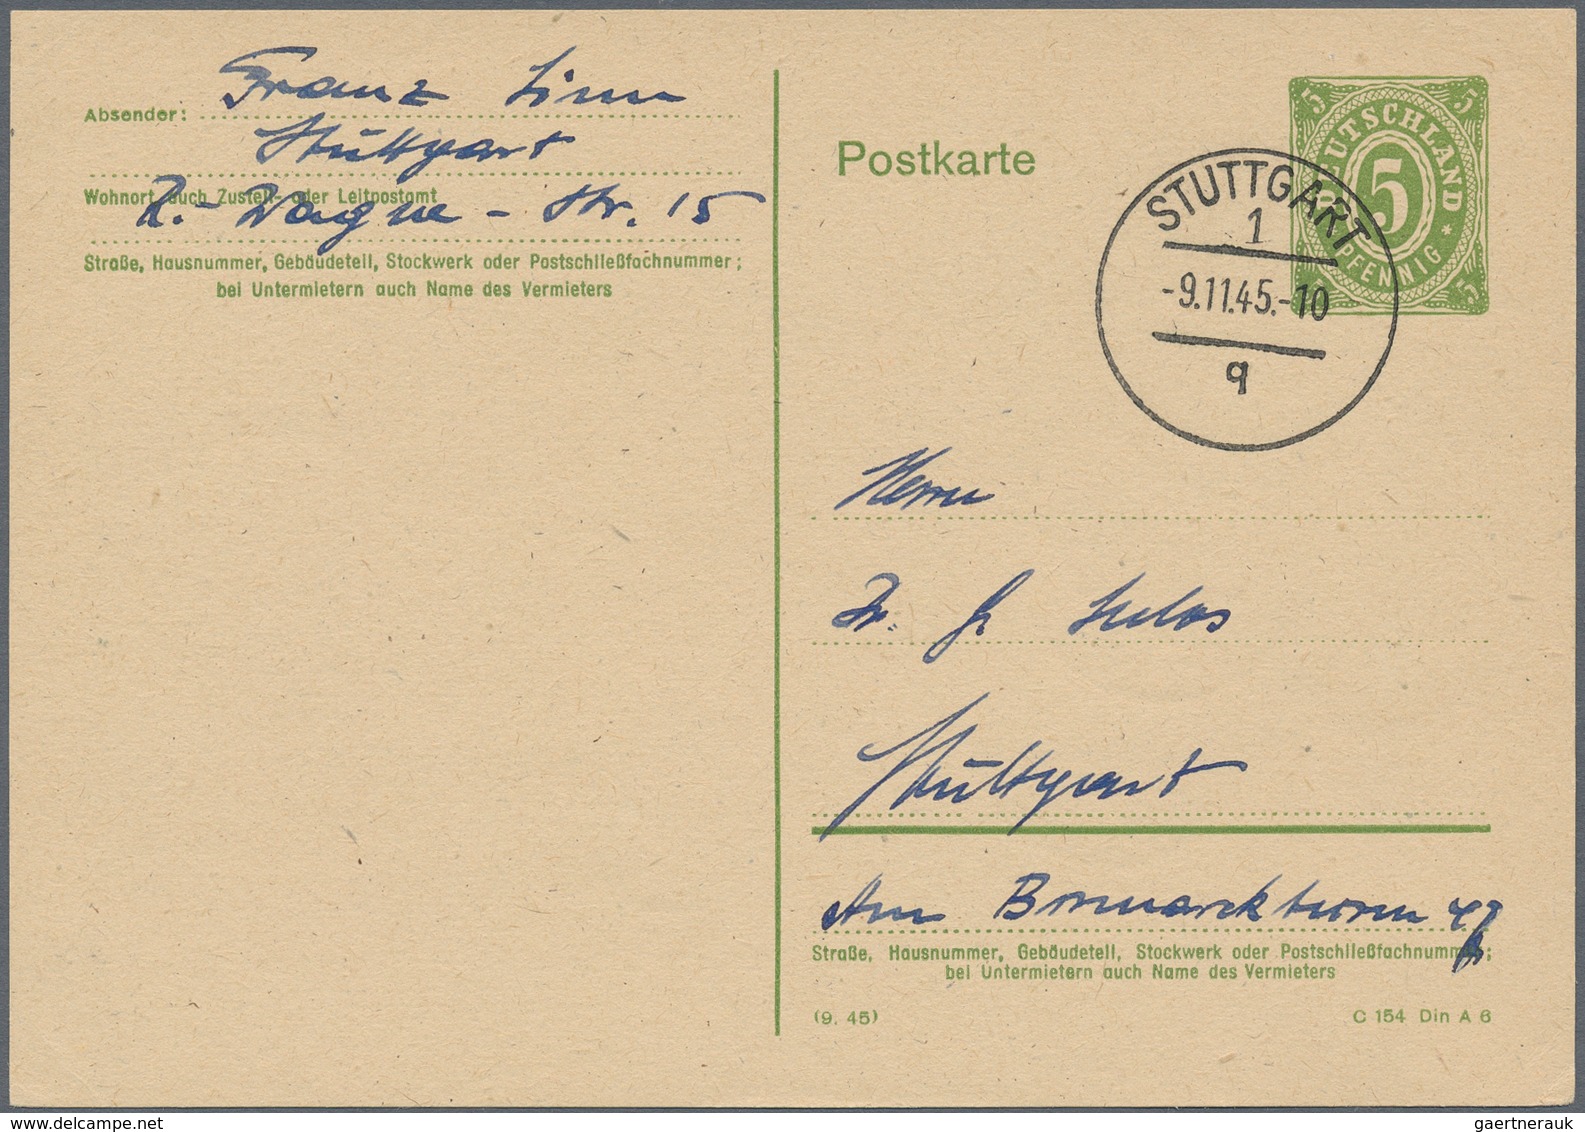 Franz Linn
Absender:
Stuttgart
Wohnort, auch Zustell- oder Leitpostamt
R.-Wagner-Str. 15
Straße, Hausnummer, Gebäudeteil, Stockwerk oder Postschließfachnummer;
bei Untermietern auch Name des Vermieters
Postkarte
DEUTSCHLAND
5 5 5
5
PFENNIG *
STUTTGART
1
-9.11.45.-10
q
Herrn
Dr. Gr.
Stuttgart
Am Bismarckturm 49
Straße, Hausnummer, Gebäudeteil, Stockwerk oder Postschließfachnummer;
bei Untermietern auch Name des Vermieters
(9. 45)
C 154 Din A 6
www.delcampe.net
gaertnerauk